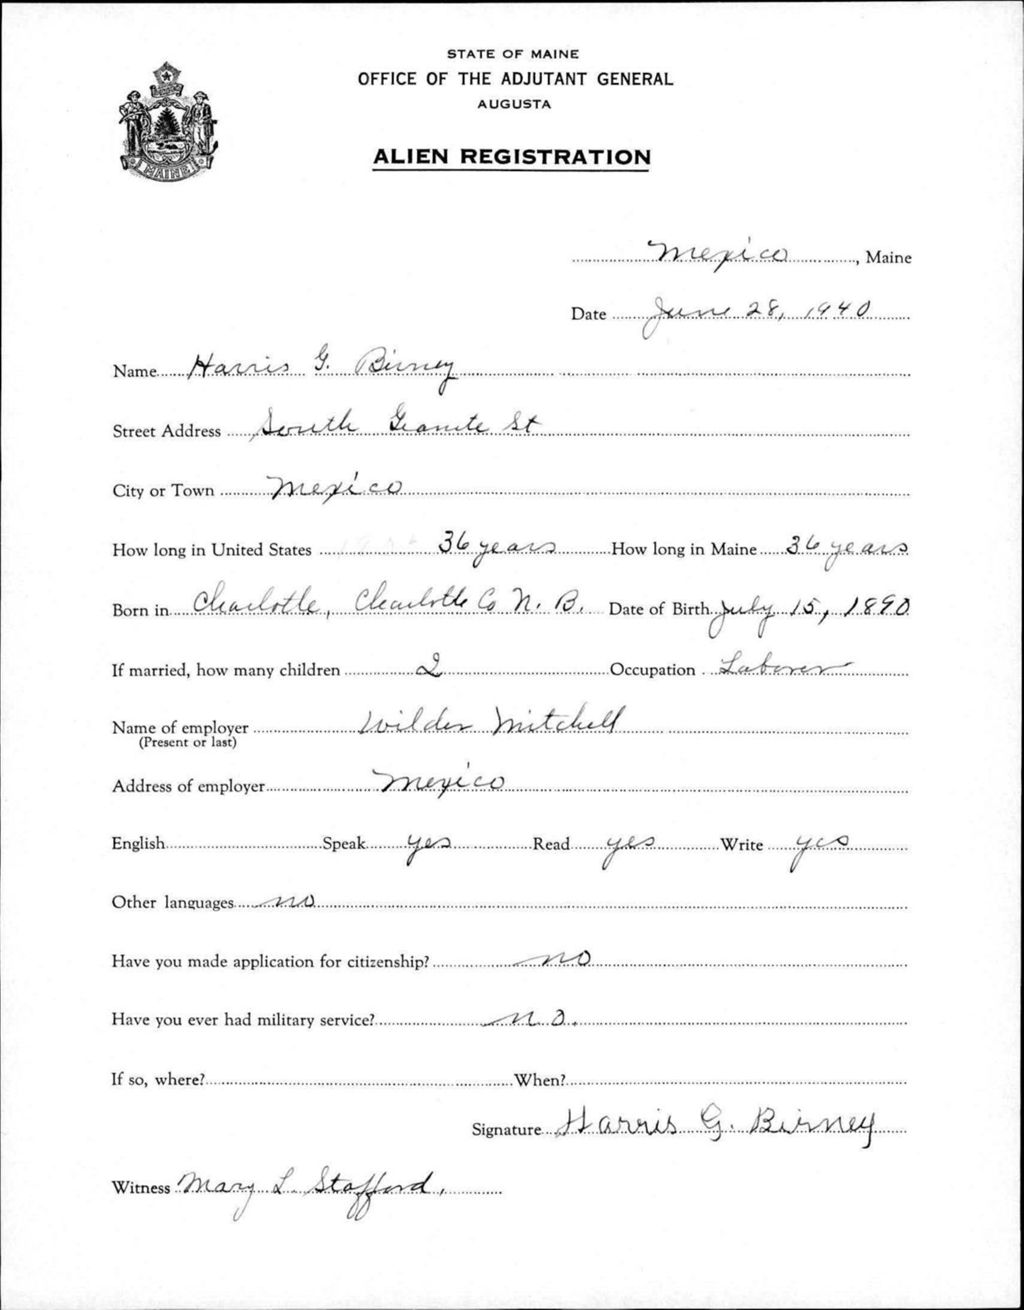 STATE OF MAINE
OFFICE OF THE ADJUTANT GENERAL
AUGUSTA
ALIEN REGISTRATION
MAINE
Mexico, Maine
Date June 28, 1940
Name Harris G. Birney
Street Address South Granite St
City or Town Mexico
How long in United States 36 years How long in Maine 36 years
Born in Charlotte, Charlotte Co N. B. Date of Birth July 15, 1890
If married, how many children 2 Occupation Laborer
Name of employer Wilder Mitchell
(Present or last)
Address of employer Mexico
English Speak yes Read yes Write yes
Other languages no
Have you made application for citizenship? no
Have you ever had military service? no.
If so, where? When?
Signature Harris G. Birney
Witness Mary L. Stafford.